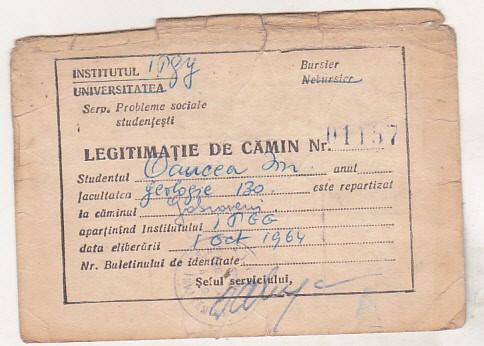 INSTITUTUL IPGG
Bursier
UNIVERSITATEA
Nebursier
Serv. Probleme sociale
studențești
LEGITIMAȚIE DE CĂMIN Nr. 01157
Studentul Oancea In. anul
facultatea geologie 130 este repartizat
la căminul Gabroveni
aparținînd Institutului IPGG
data eliberării 1 Oct 1964
Nr. Buletinului de identitate
Șeful serviciului,